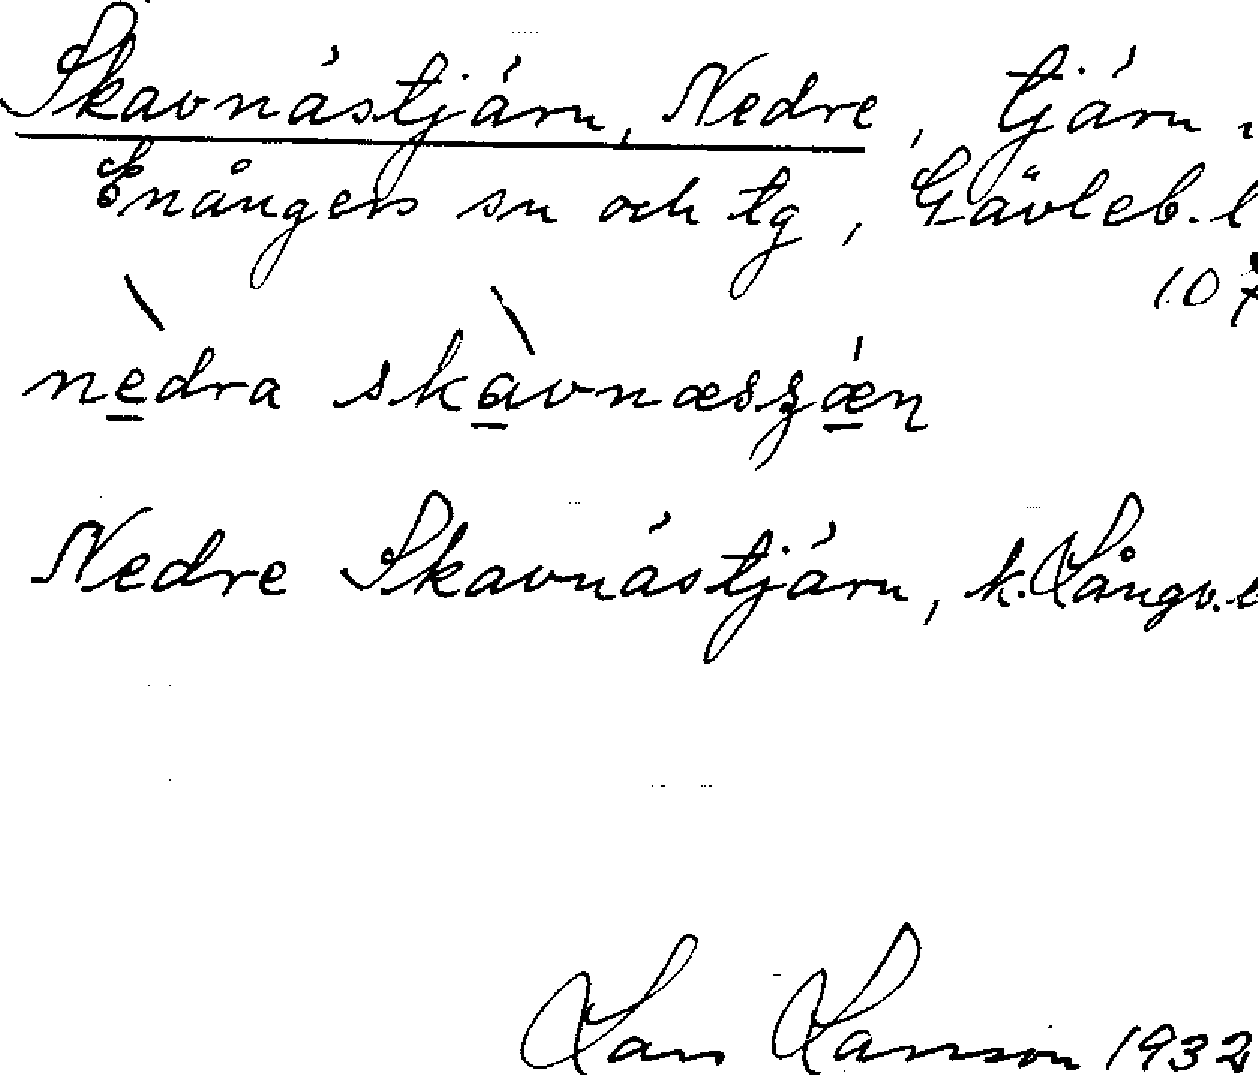 Skavnästjärn, Nedre, tjärn
Enångers sn och tg, Gävleb. l
107
nèdra skàvnæsʒǽn
Nedre Skavnästjärn, k. Långv.
Lars Larsson 1932